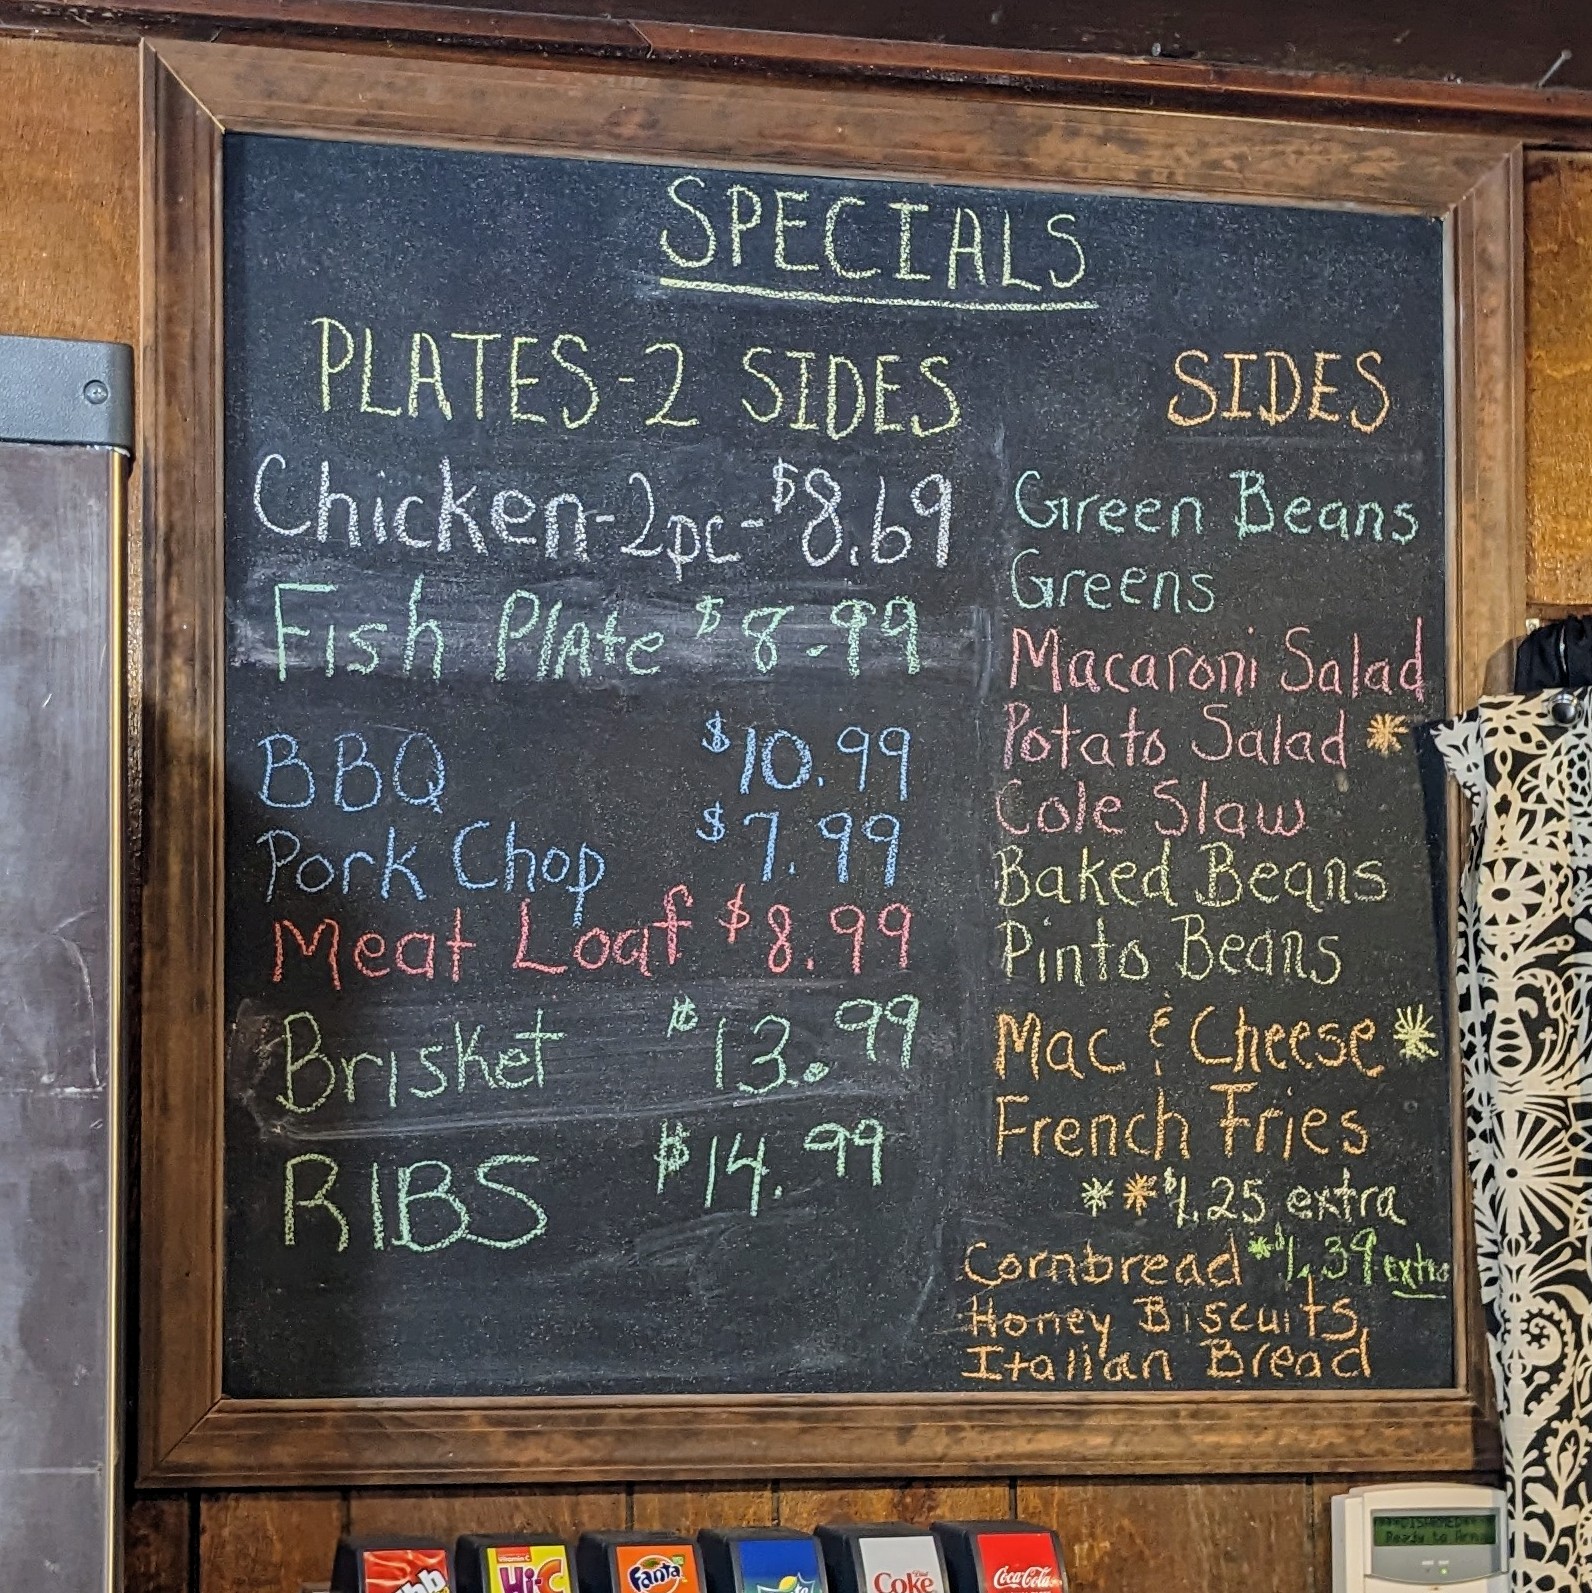 SPECIALS
PLATES-2 SIDES
Chicken-2pc-$8.69
Fish Plate $8.99
BBQ $10.99
Pork Chop $7.99
Meat Loaf $8.99
Brisket $13.99
RIBS $14.99
SIDES
Green Beans
Greens
Macaroni Salad
Potato Salad *
Cole Slaw
Baked Beans
Pinto Beans
Mac & Cheese *
French Fries
** $1.25 extra
Cornbread *$1.39 extra
Honey Biscuits,
Italian Bread
Vitamin C
Hi-C
Fanta
Diet
Coke
Coca-Cola
Ready to Arm